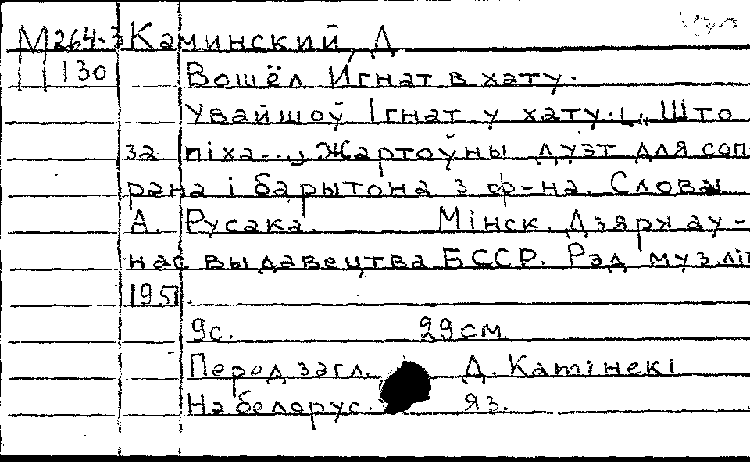 М 264-3 Каминский, Д
130 Вошёл Игнат в хату.
Увайшоў Ігнат у хату. („Што
за піха..." Жартоўны дуэт для соп-
рана і барытона з ф-на. Словы
А. Русака. Мінск. Дзяржаў-
нае выдавецтва БССР. Рэд муз.літ
1951.
9с. 29см
Перед загл. Д. Камінскі
На белорус. яз.